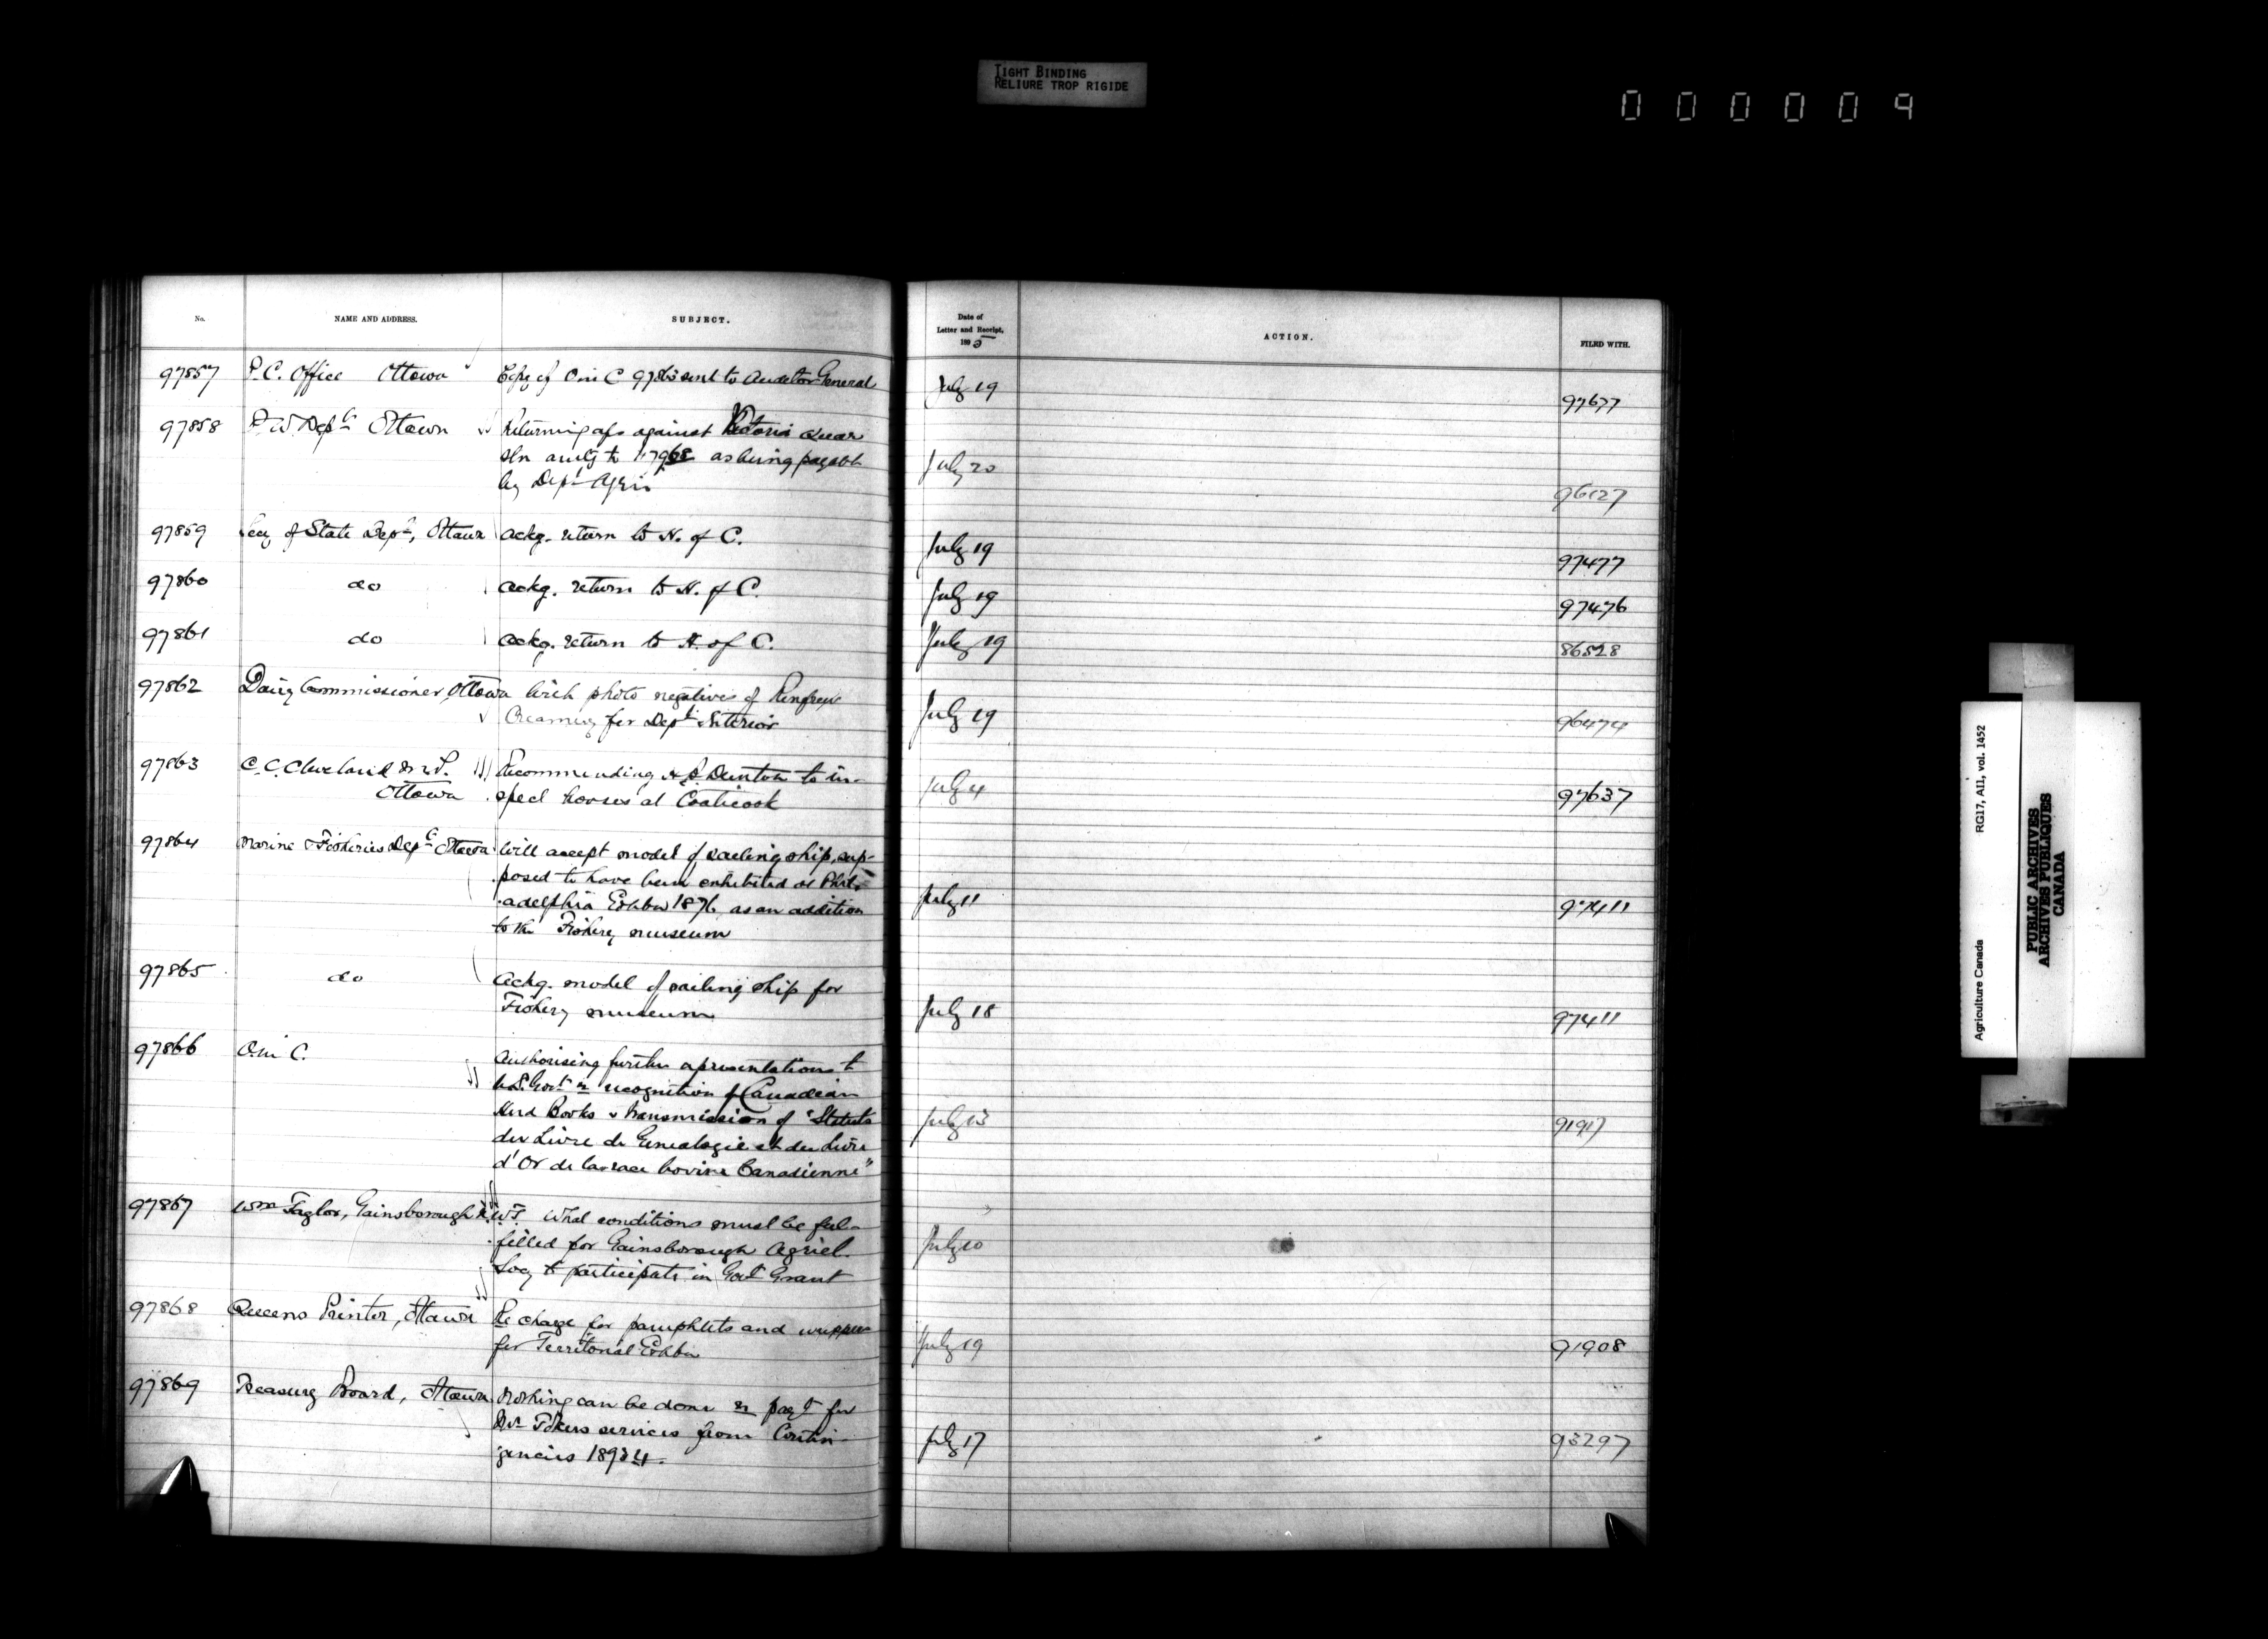 TIGHT BINDING
RELIURE TROP RIGIDE
000009
No.
NAME AND ADDRESS.
SUBJECT.
Date of
Letter and Receipt,
1895
ACTION.
FILED WITH.
97857 P.C. Office Ottawa Copy of O in C 97863 sent to Auditor General July 19 97677
97858 P.W. Dept Ottawa Returning a/cs against Victoria Quar
Stn amtg to as being payable
by Dept Agri July 20 96127
97859 Secy of State Dept, Ottawa ackg. return to H. of C. July 19 97477
97860 do ackg. return to H. of C. July 19 97476
97861 do ackg. return to H. of C. July 19 86528
97862 Dairy Commissioner, Ottawa With photo negatives of Renfrew
Creamery for Dept Interior July 19 96474
97863 C.C. Cleveland M.P. Recommending Dunton to in-
Ottawa spect horses at Coaticook July 4 97637
97864 Marine & Fisheries Dept Ottawa Will accept model of sailing ship, sup-
posed to have been exhibited at Phil-
adelphia Exhbn 1876, as an addition
to the Fishery museum July 11 97411
97865 do Ackg. model of sailing ship for
Fishery museum July 18 97411
97866 O. in C. Authorising further representations to
U.S. Govt re recognition of Canadian
Herd Books & transmission of "Statuts
du Livre de Genealogie et du Livre
d'Or de la race bovine Canadienne" July 13 91917
97867 Wm Taylor, Gainsborough N.W.T. What conditions must be ful-
filled for Gainsborough Agricl.
Socy to participate in Govt Grant July 10
97868 Queens Printer, Ottawa Re charge for pamphlets and wrappers
for Territorial Exhbn July 19 91908
97869 Treasury Board, Ottawa Nothing can be done re payt for
services from Contin-
gencies 1893 4. July 17 93297
Agriculture Canada RG17, AI1, vol. 1452
PUBLIC ARCHIVES
ARCHIVES PUBLIQUES
CANADA